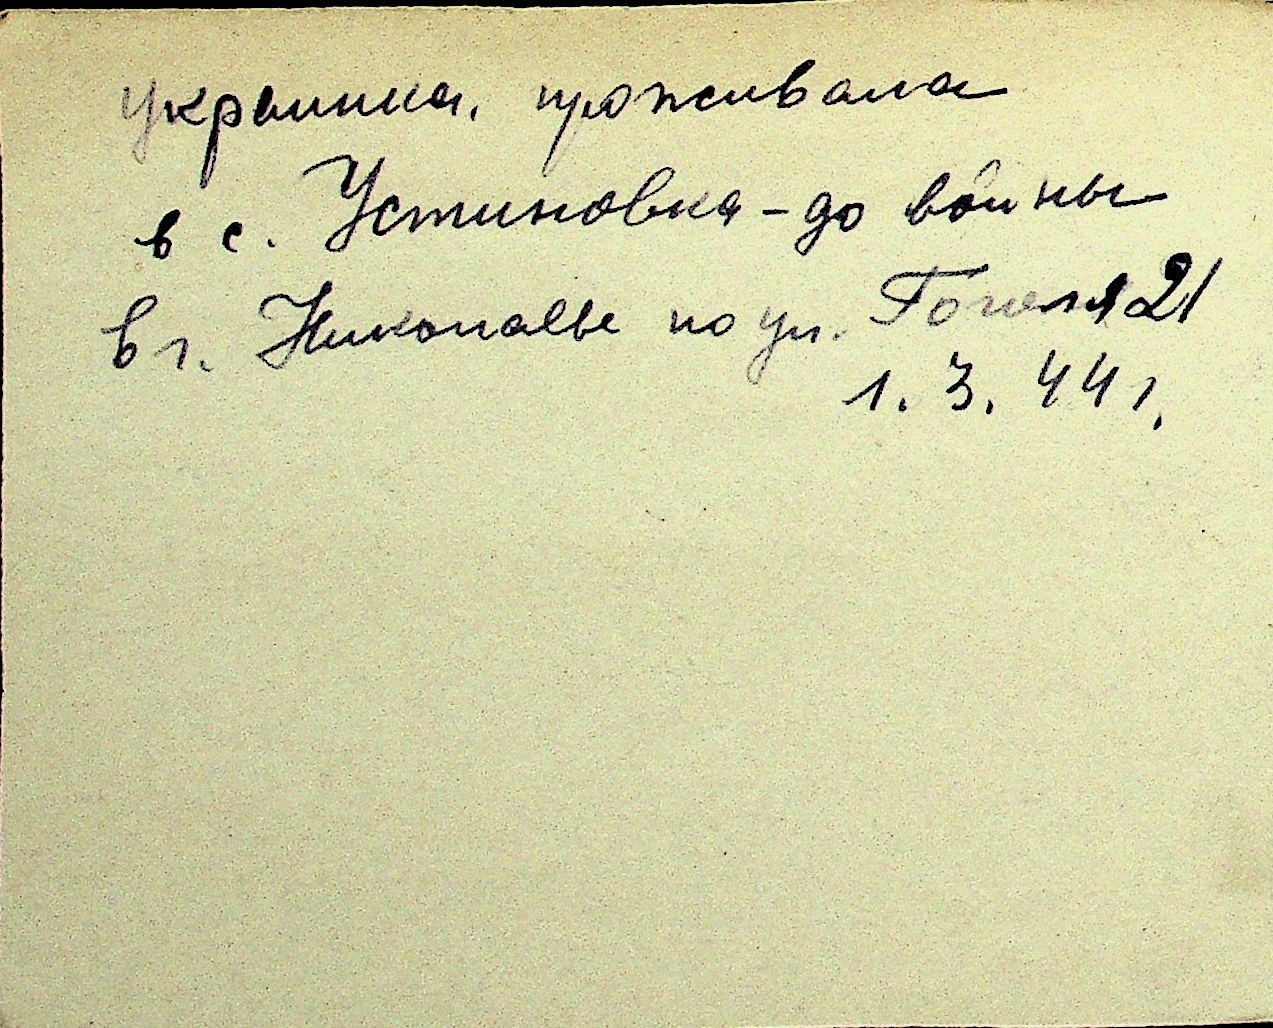 украинка, проживала
в с. Устиновка - до войны
в г. Никополье по ул. Гоголя 21
1. 3. 44 г.